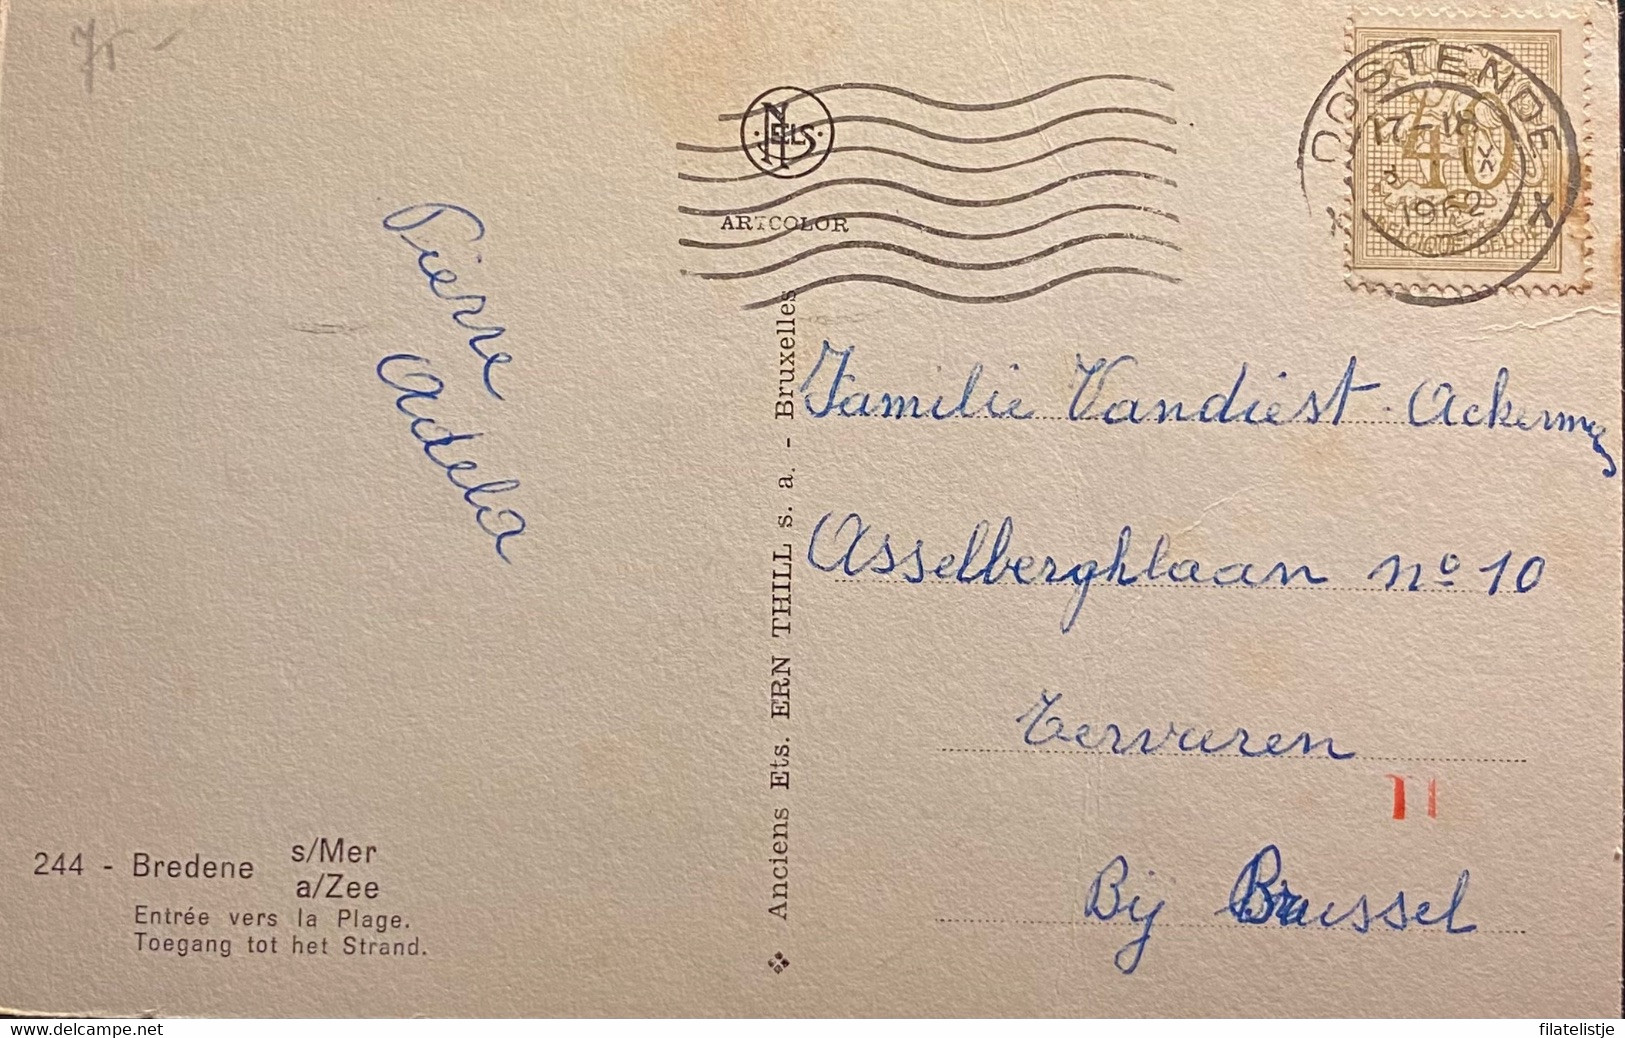 75 -
NELS
ARTCOLOR
OOSTENDE
17-18
3 IX
1962
X X
40
BELGIQUE-BELGIE
Pierre
Adela
Familie Vandiest-Ackermans
Asselberghlaan no 10
Tervuren
Bij Brussel
Anciens Ets. ERN THILL s. a. - Bruxelles
244 - Bredene s/Mer
a/Zee
Entrée vers la Plage.
Toegang tot het Strand.
delcampe.net
filatelistje